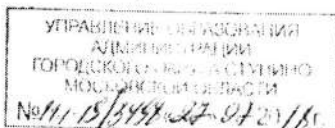 УПРАВЛЕНИЕ ОБРАЗОВАНИЯ
АДМИНИСТРАЦИИ
ГОРОДСКОГО ОКРУГА СТУПИНО
МОСКОВСКОЙ ОБЛАСТИ
№ 27 20 18 г.